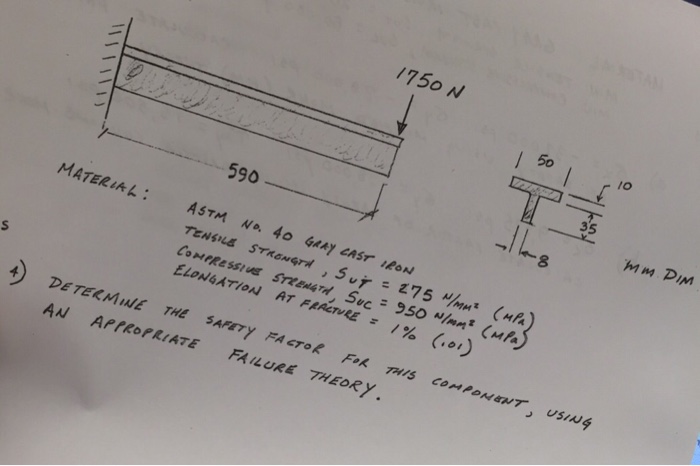 1750 N
590
50
10
35
8
mm DIM
MATERIAL:
ASTM No. 40 GRAY CAST IRON
TENSILE STRENGTH, SUT = 275 N/mm² (MPa)
COMPRESSIVE STRENGTH, SUC = 950 N/mm² (MPa)
ELONGATION AT FRACTURE = 1% (.01)
s
4) DETERMINE THE SAFETY FACTOR FOR THIS COMPONENT, USING
AN APPROPRIATE FAILURE THEORY.